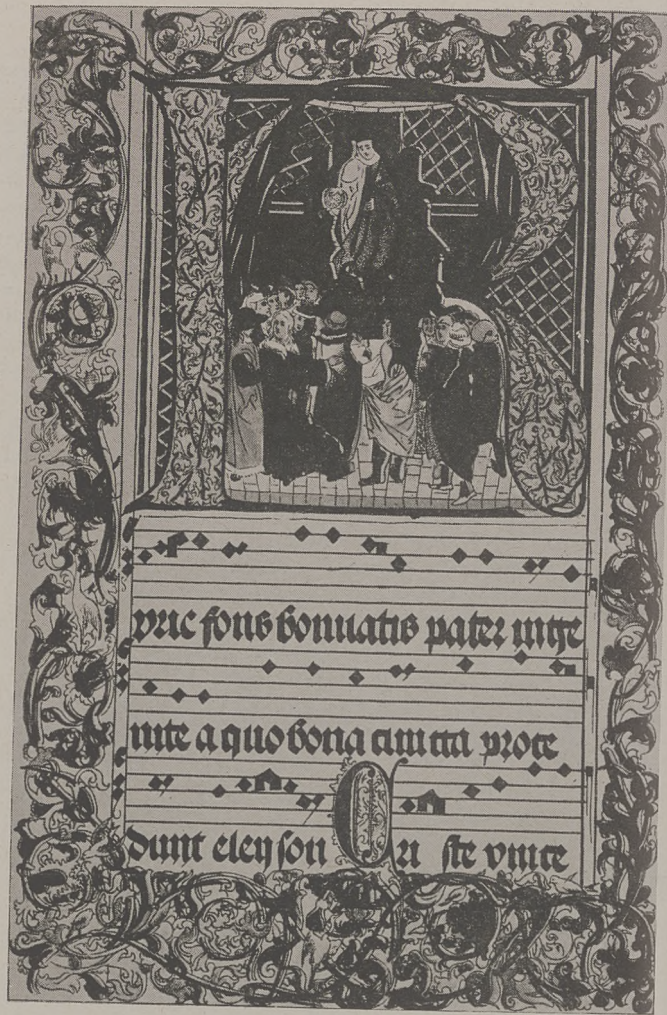 Kyrie fons bonitatis pater inge
nite a quo bona cuncta proce
dunt eleyson Cri ste vnice